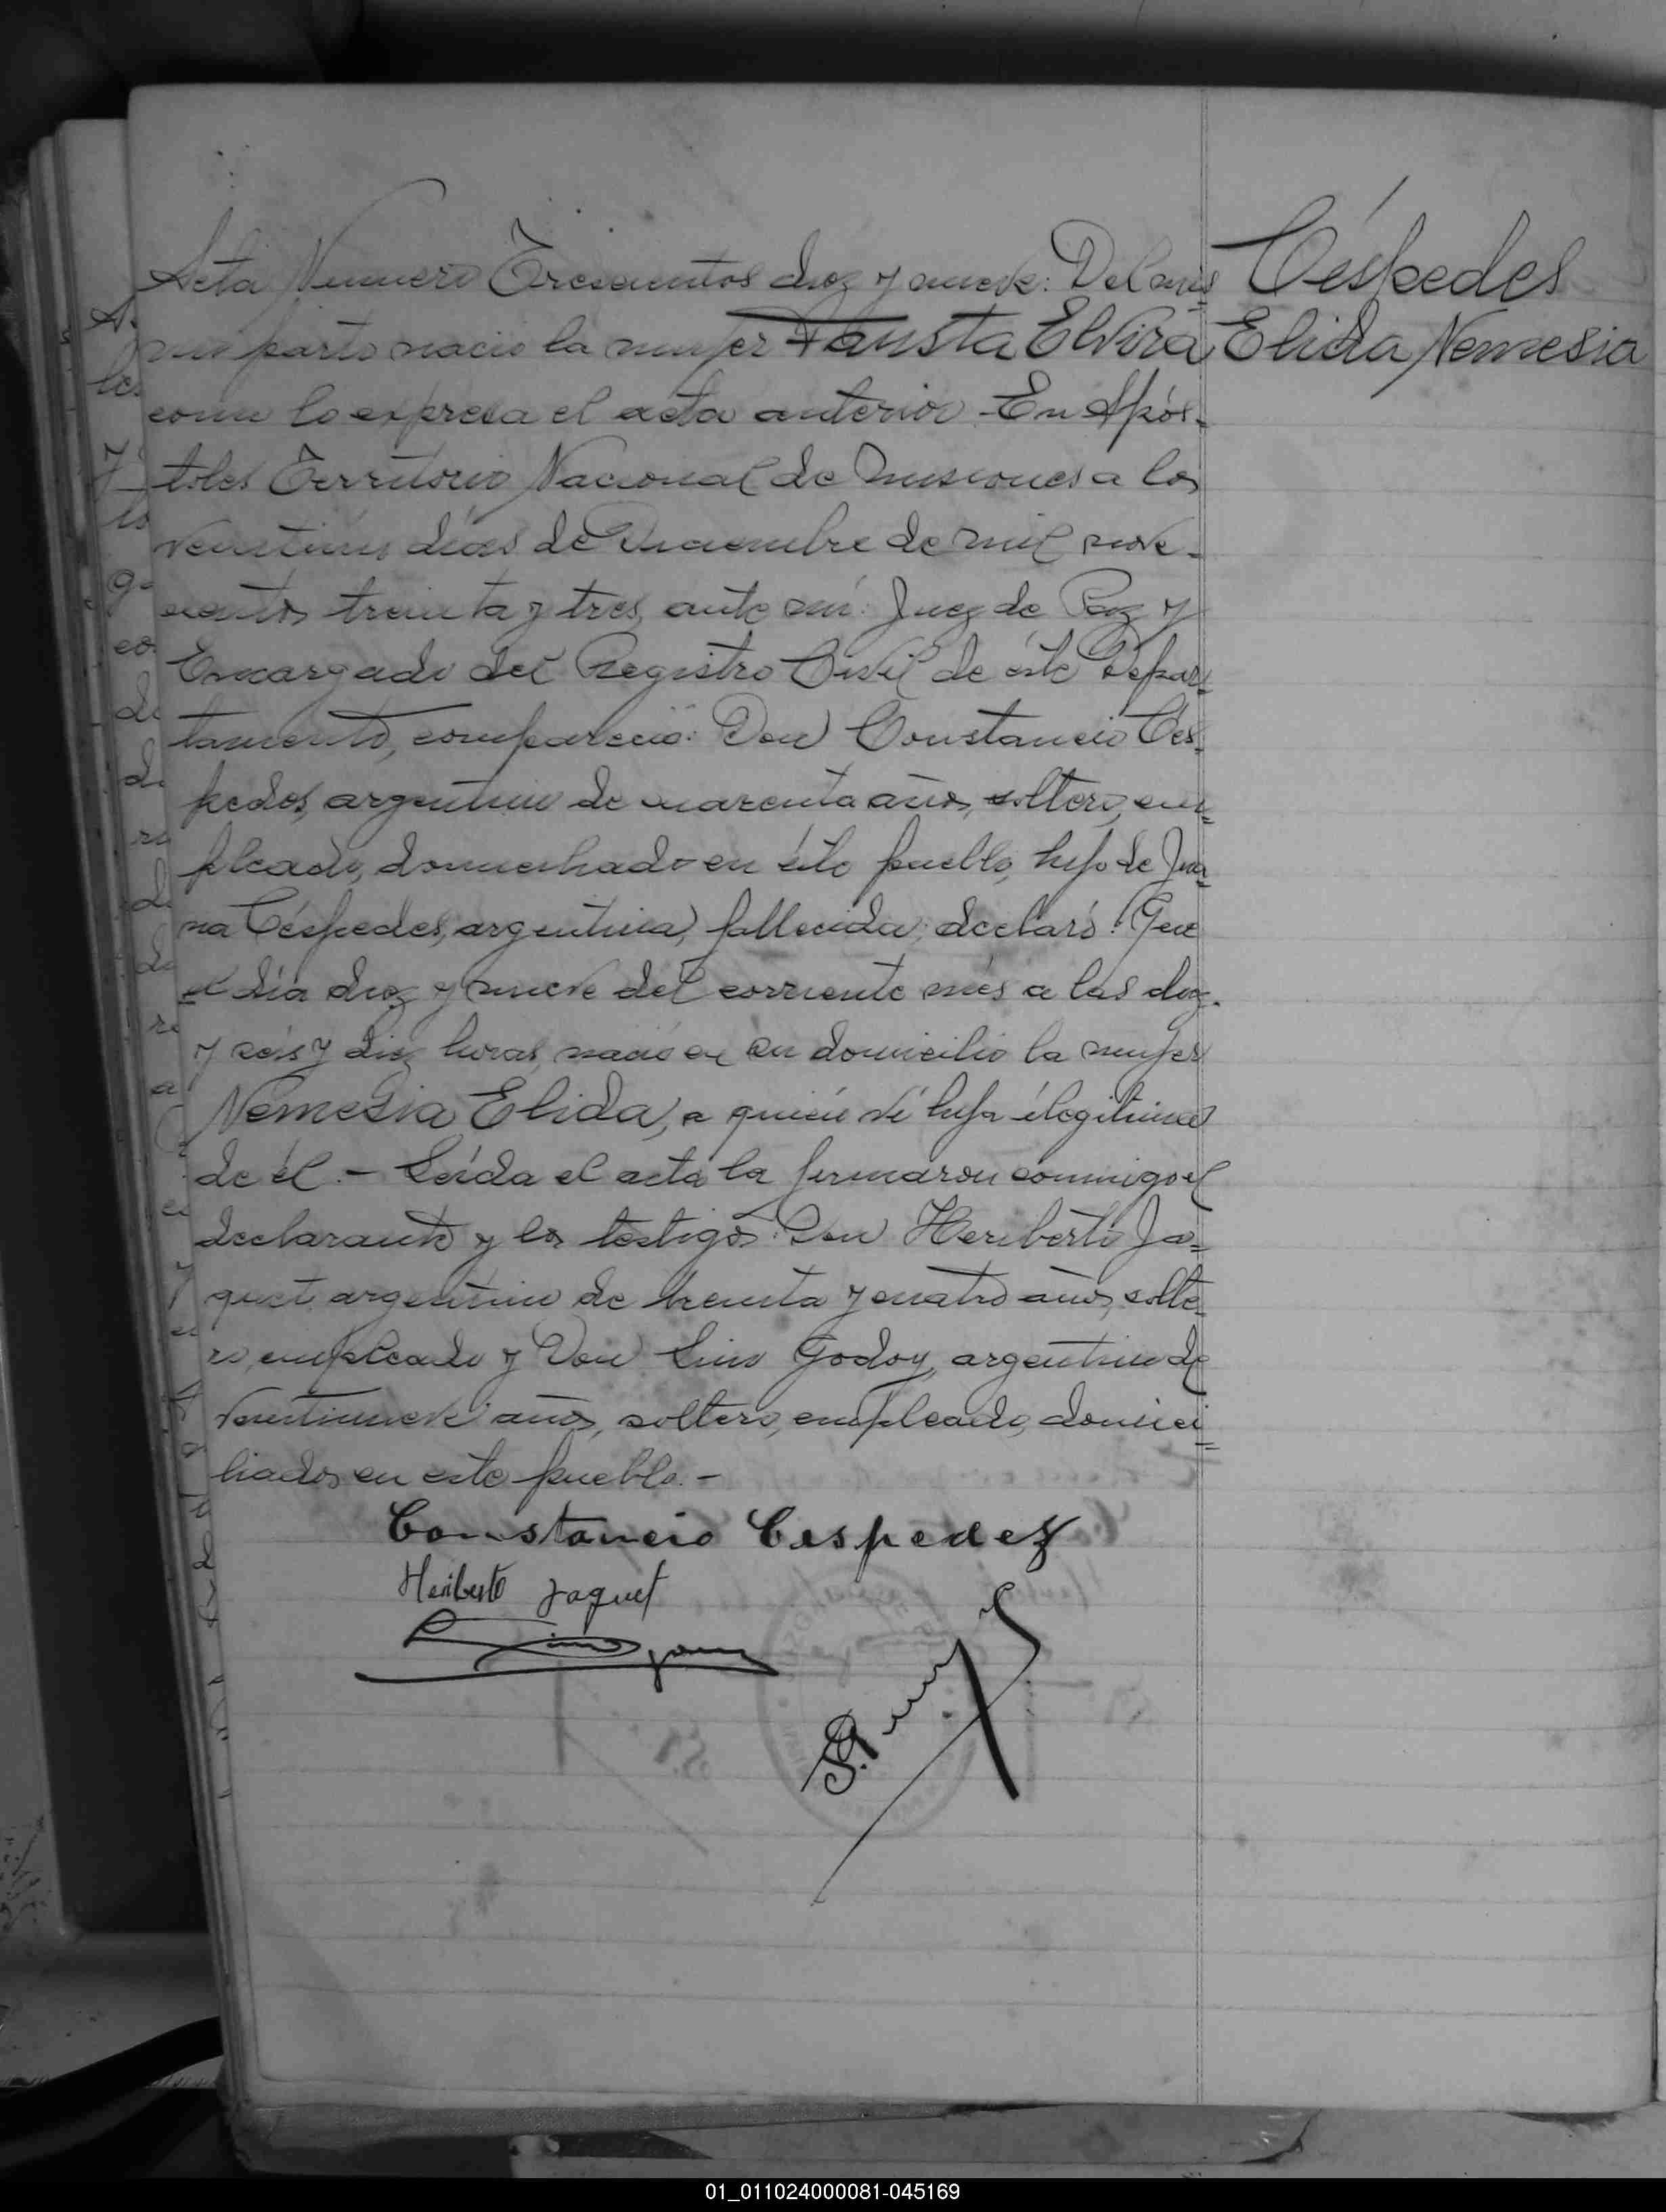 Acta Número Trescientos diez y nueve: Del mis
mo parto nació la mujer Fausta Elvira
como lo expresa el acta anterior - En Após-
toles Territorio Nacional de Misiones a los
veintiún días de Diciembre de mil nove-
cientos treinta y tres, ante mí: Juez de Paz y
Encargado del Registro Civil de éste Depar-
tamento, compareció: Don Constancio Cés-
pedes, argentino de cuarenta años, soltero, em-
pleado, domiciliado en éste pueblo, hijo de Jua-
na Céspedes, argentina, fallecida; declaró: Que
el día diez y nueve del corriente més a las diez
y seis y diez horas, nació en su domicilio la mujer
Nemesia Elida, a quién ví hija ilegítima
de él. - Leída el acta la firmaron conmigo el
declarante y los testigos: Don Heriberto Ja-
quet argentino de treinta y cuatro años, solte-
ro, empleado y Don Lino Godoy, argentino de
veintinueve años, soltero, empleado, domici-
liados en este pueblo. -
Constancio Cespedez
Heriberto Jaquet
Céspedes
Elida Nemesia
01_011024000081-045169